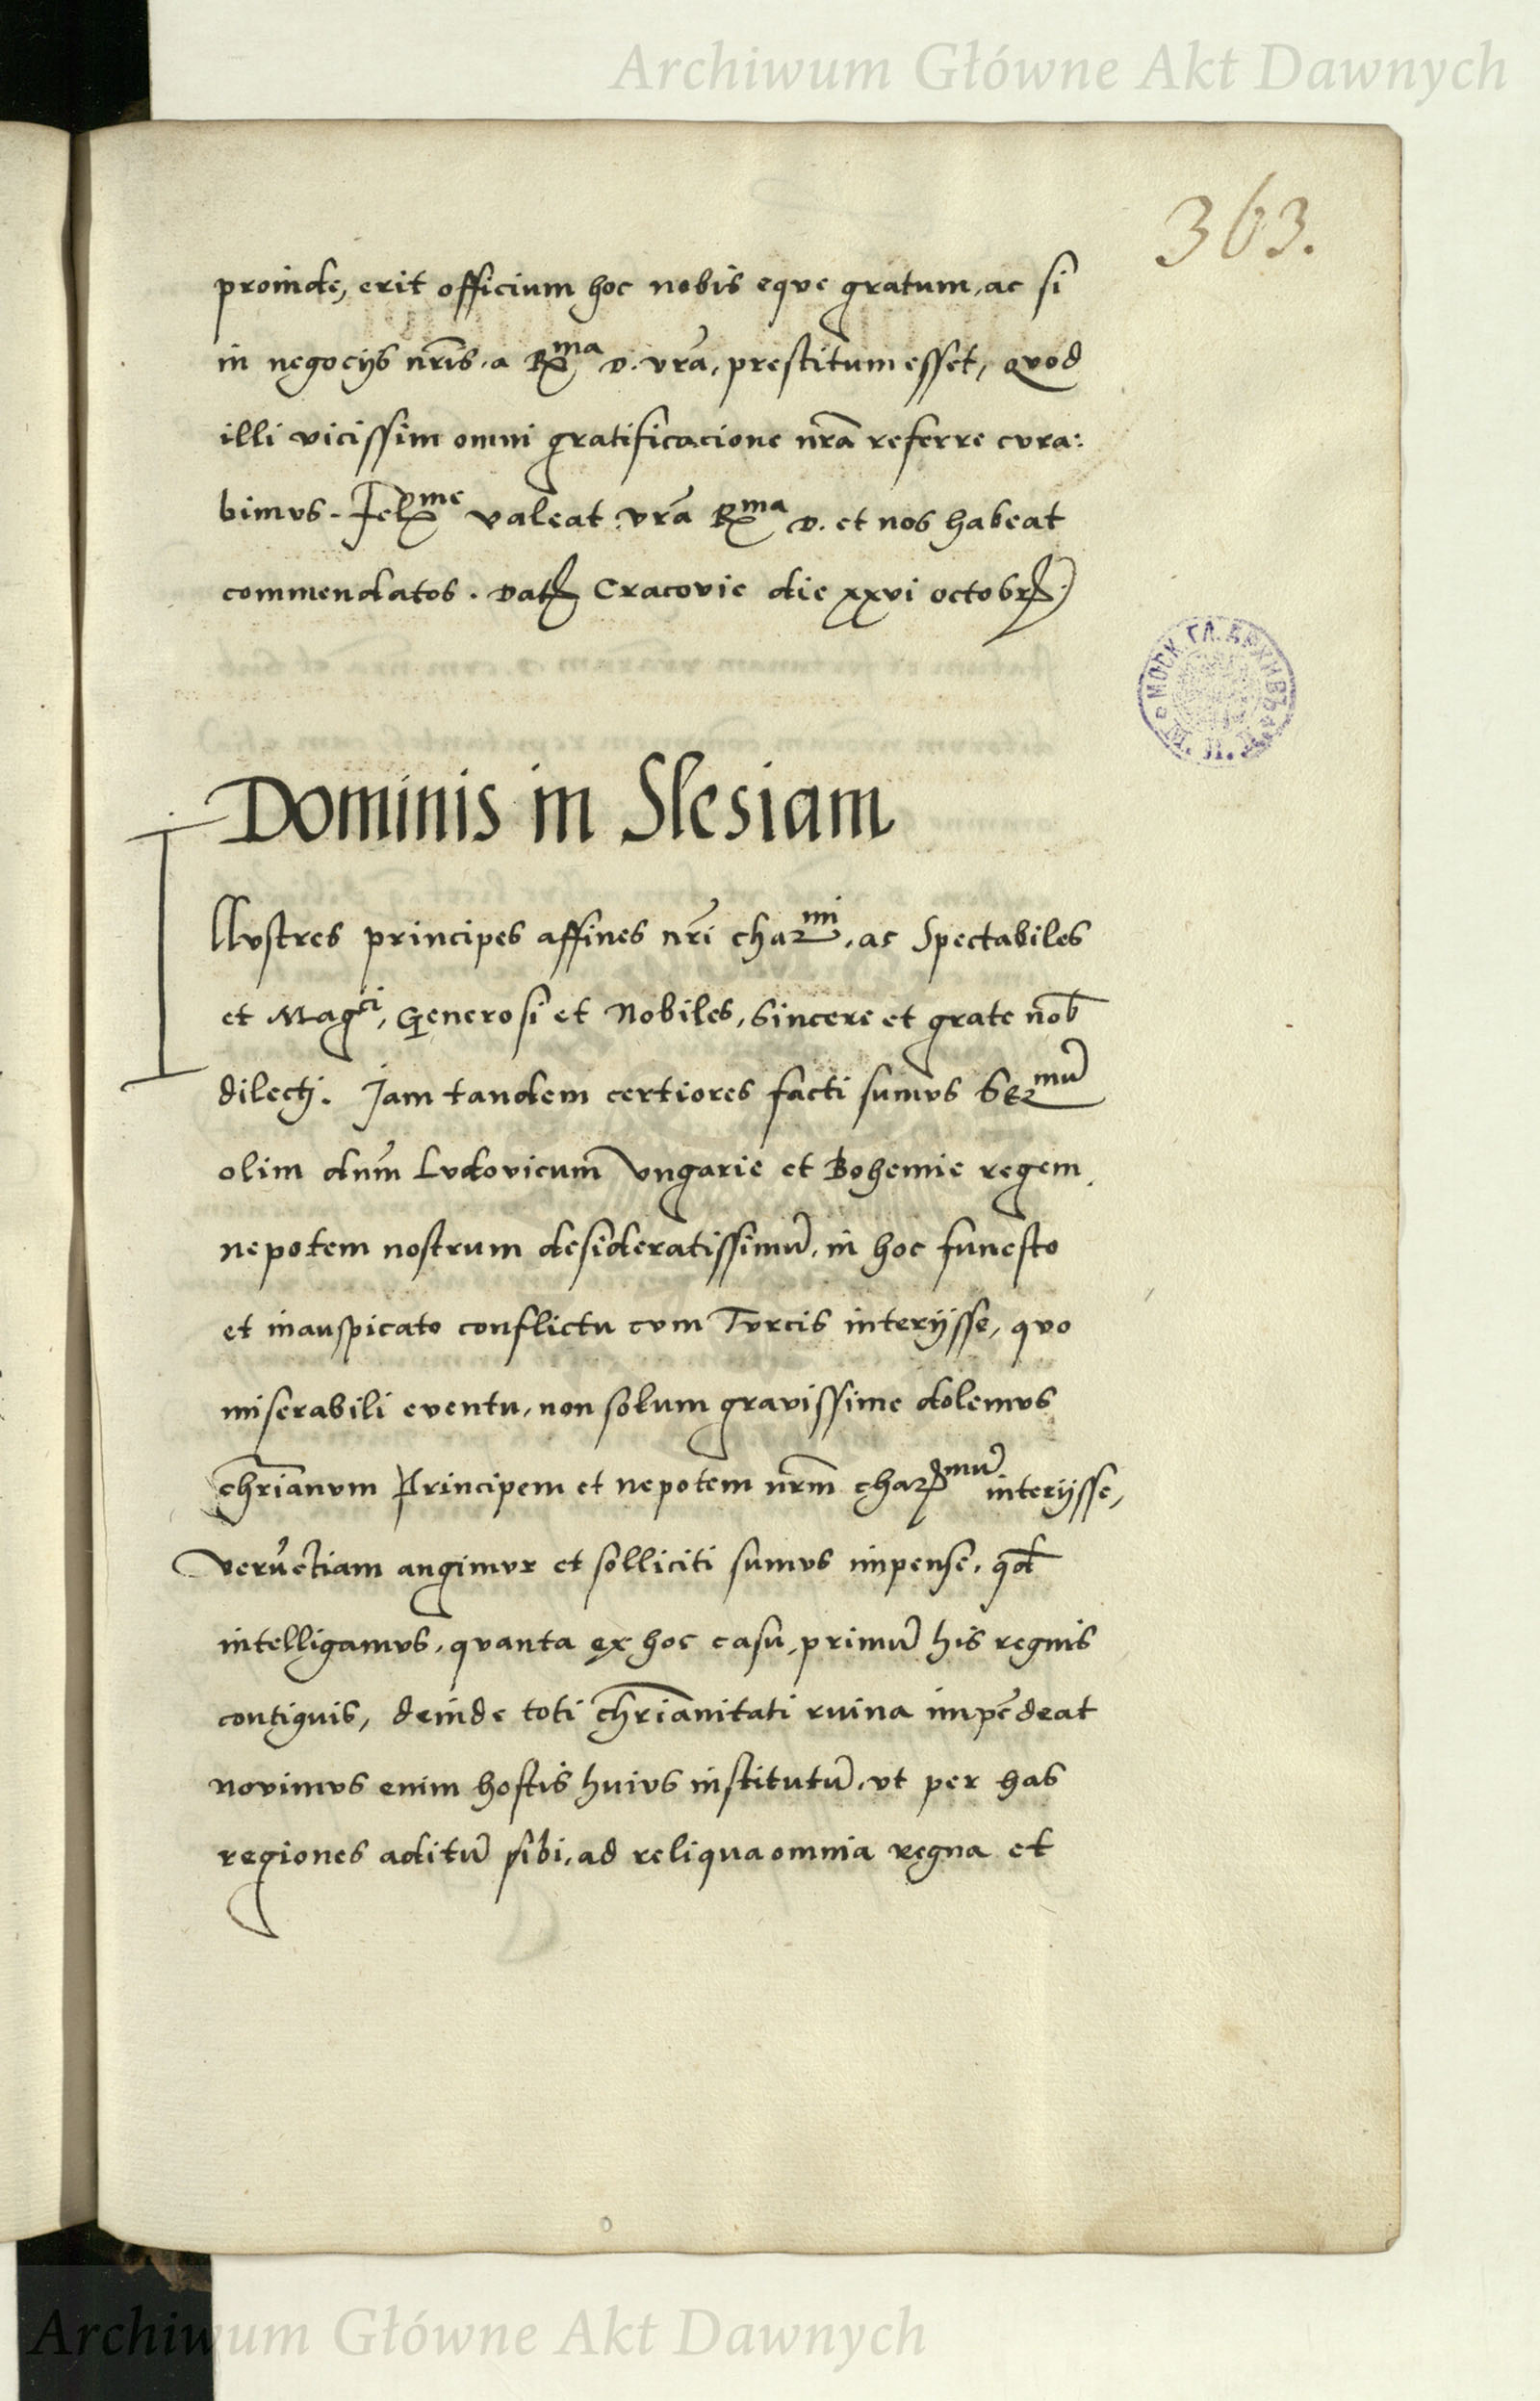 Archiwum Główne Akt Dawnych
363.
proinde, erit officium hoc nobis eque gratum, ac si
in negocijs nr̃is, a Rx̃ma D. vr̃a, prestitum esset, quod
illi vicissim omni gratificacione nr̃a referre cura:
bimus. Felxme valeat vr̃a Rxma D. et nos habeat
commendatos. Dat Cracovie die xxvi octobr
МОСК. ГЛ. АРХИВЪ
Dominis in Slesiam
Illustres principes affines nr̃i charmi, ac Spectabiles
et Magci, Generosi et Nobiles, sincere et grate nob̃
dilecti. Jam tandem certiores facti sumus Sermũ
olim dnm̃ Ludovicum Vngarie et Bohemie regem,
nepotem nostrum desideratissimũ, in hoc funesto
et inauspicato conflictu cum Turcis interijsse, quo
miserabili eventu, non solum gravissime dolemus
chr̃ianum Principem et nepotem nrm̃ charmũ interijsse,
verũetiam angimur et solliciti sumus impense, qd̃
intelligamus, quanta ex hoc casu, primũ his regnis
contiguis, deinde toti chr̃ianitati ruina impẽdeat
novimus enim hostis huius institutũ, ut per has
regiones aditũ sibi, ad reliqua omnia regna et
Archiwum Główne Akt Dawnych